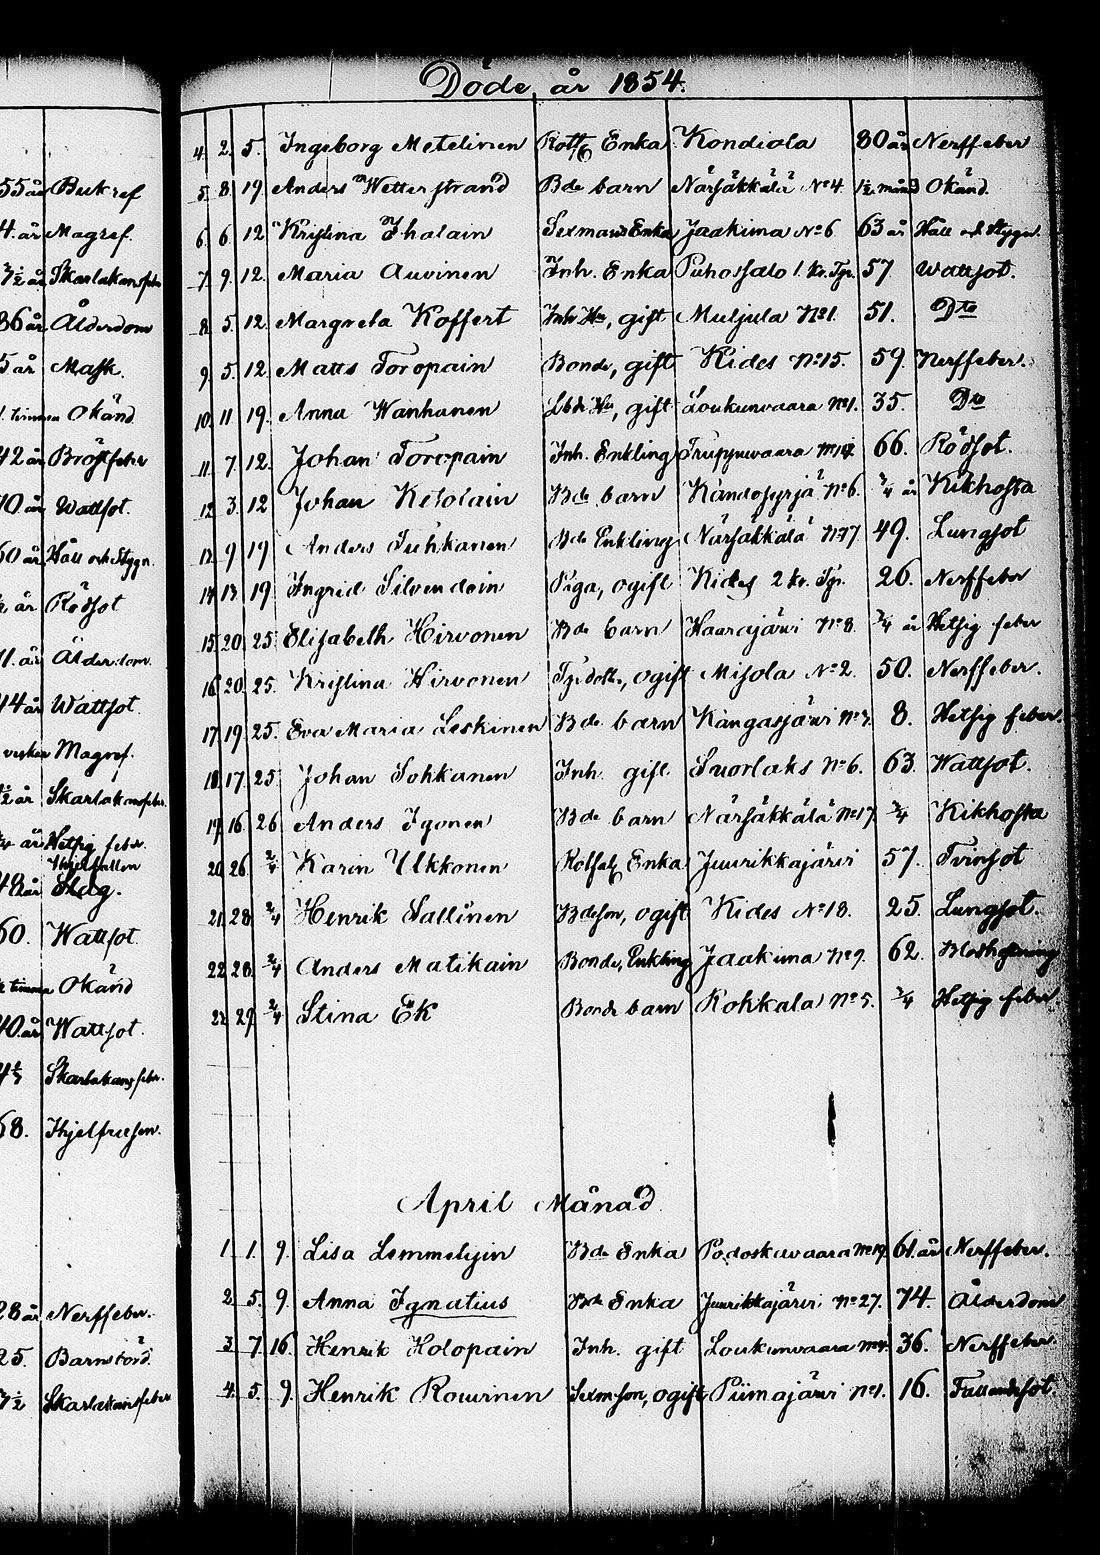 Döde år 1854.
55 år Bukref
4. år Magref.
7½ år Skarlakansfeber
86 år Ålderdom
5 år Mask.
1. timma Okänd
42 år Bröstfeber
70 år Wattsot.
60 år Håll och Styggn.
år Rödsot
71. år Ålderdom.
44 år Wattsot.
veckor Magref.
½ år Skarlakansfeber.
¼ år Hetsig feber
48 år Slag.
60. Wattsot
timma Okänd
40. år Wattsot.
Skarlakansfeber.
68. Ihjelfrusen.
28 år Nerffeber.
25. Barnsbörd.
½ Skarlakansfeber
4. 2. 5. Ingeborg Metelinen Rotf. Enka Kondiola 80 år Nerffeber
5. 8. 19. Anders Wetterstrand Bde barn Närsäkkälä No 4. 1½ månd Okänd.
6. 6. 12 Kristina Ihalain Sexmans Enka Jaakima No 6. 63 år Håll och Styggn.
7. 9. 12. Maria Auvinen Inh. Enka Puhossalo 1. Kv. Tpr. 57. Wattsot.
8. 5. 12. Margreta Koffert Inh. Hu, gift Muljula No 1. 51. Dto
9. 5. 12. Matts Toropain Bonde, gift Kides No 15. 59. Nerffeber.
10. 11 19. Anna Wanhanen Lbde Hu, gift Loukunvaara No 1. 35. Dto
11. 7. 12. Johan Toropain Inh. Enkling 66. Rödsot.
12 3. 12 Johan Kesolain Bde barn No 6. ¾ år Kikhosta
13. 9 19 Anders Tuhkanen Bde Enkling Närsäkkälä No 17 49. Lungsot
14 13 19 Ingrid Silvendoin Piga, ogift Kides 2 kv. Tpr. 26. Nerffeber
15 20 25 Elisabeth Hirvonen Bde barn Haarajärvi No 8. ¾ år Hetsig feber
16 20. 25. Kristina Hirvonen Tpr dott., ogift Misola No 2. 50. Nerffeber.
17 19 25. Eva Maria Leskinen Bde barn Kangasjärvi No 7. 8. Hetsig feber.
18. 17. 25 Johan Sohkanen Inh. gift. Suorlaks No 6. 63. Wattsot.
19 16. 26 Anders Igonen Bde barn Närsäkkälä No 17. ¾ Kikhosta
20. 26. 2/4 Karin Ukkonen Rotfat. Enka Juurikkajärvi 57. Tvinsot
21. 28. 2/4 Henrik Sallinen Bdeson, ogift Kides No 18. 25. Lungsot.
22 28. 2/4 Anders Matikain Bonde, Enkling Jaakima No 9. 62.
23. 29. 2/4 Stina Ek Bonde barn Rohkala No 5. ¾ Hetsig feber
April Månad
1. 1. 9. Lisa Lemmetyin Bde Enka Podoskuvaara No 19. 61. år Nerffeber.
2. 5. 9. Anna Ignatius Bde Enka Juurikkajärvi No 27. 74. Ålderdom
3. 7. 16. Henrik Holopain Inh. gift Loukunvaara No 4. 36. Nerffeber.
4. 5. 9. Henrik Rouvinen Sexm. son, ogift Piimajärvi No 1. 16. Fallandesot.